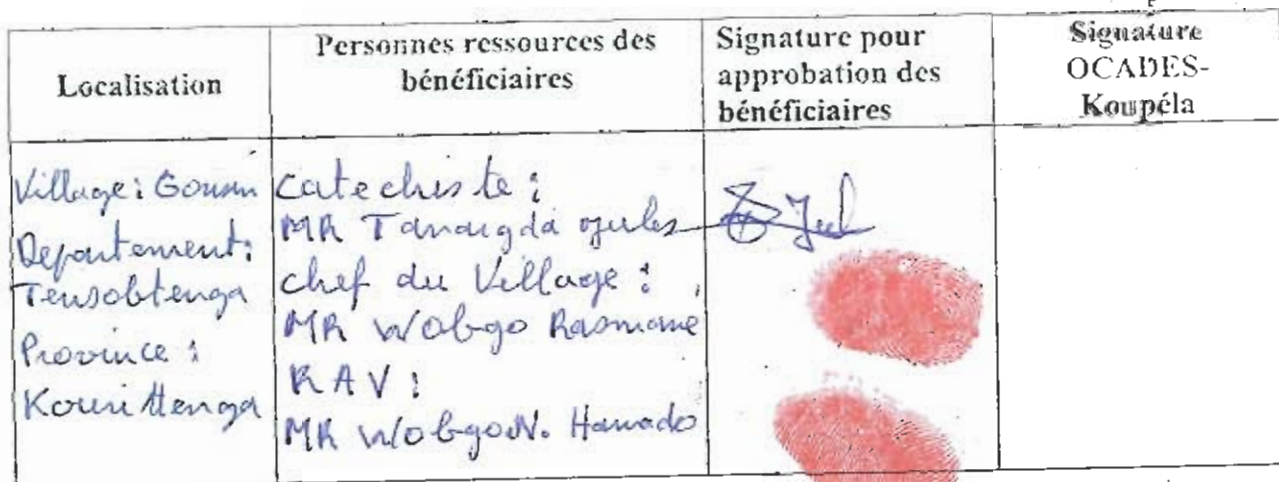 Localisation
Personnes ressources des
bénéficiaires
Signature pour
approbation des
bénéficiaires
Signature
OCADES-
Koupéla
Village :
Departement :
Tensobtenga
Province :
Kourittenga
Catechiste :
MR Tanaigda Jules
chef du Village :
MR Wobgo Rasmane
RAV :
MR Wobgo N. Hamado